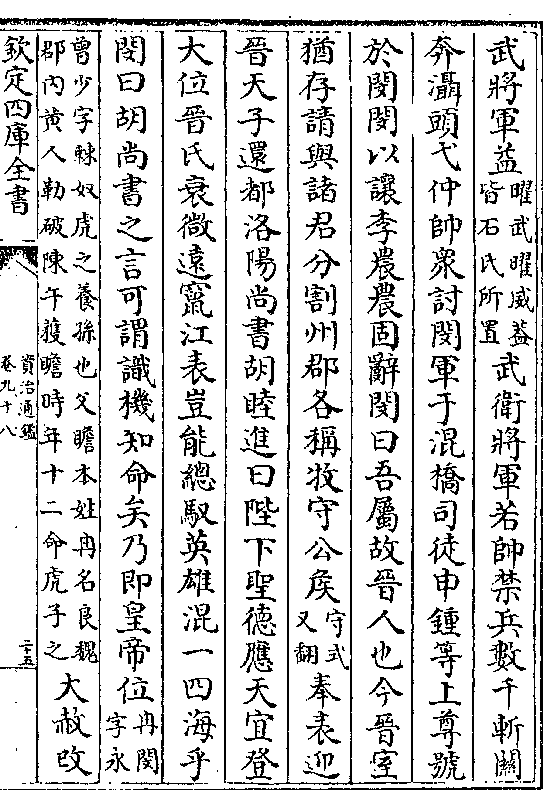 武將軍益曜武曜威益皆石氏所置武衛將軍若帥禁兵數千斬關
奔灄頭弋仲帥衆討閔軍于混橋司徒申鍾等上尊號
於閔閔以讓李農農固辭閔曰吾屬故晉人也今晉室
猶存請與諸君分割州郡各稱牧守公侯守式又翻奉表迎
晉天子還都洛陽尚書胡睦進曰陛下聖德應天宜登
大位晉氏衰微遠竄江表豈能總馭英雄混一四海乎
閔曰胡尚書之言可謂識機知命矣乃即皇帝位冉閔字永
曾少字棘奴虎之養孫也父瞻本姓冉名良魏郡内黄人勒破陳午獲瞻時年十二命虎子之大赦改
欽定四庫全書
資治通鑑
卷九十八
二十五